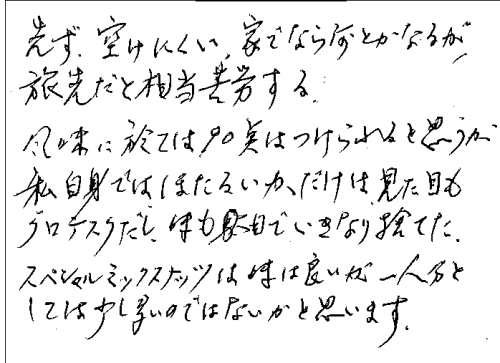 先ず、空けにくい、家でなら何とかなるが、
旅先だと相当苦労する。
風味に於ては90点はつけられると思うが
私自身ではほたるいか、だけは、見た目も
グロテスクだし、味も駄目でいきなり捨てた。
スペシャルミックスナッツは味は良いが一人分と
しては少し多いのではないかと思います。